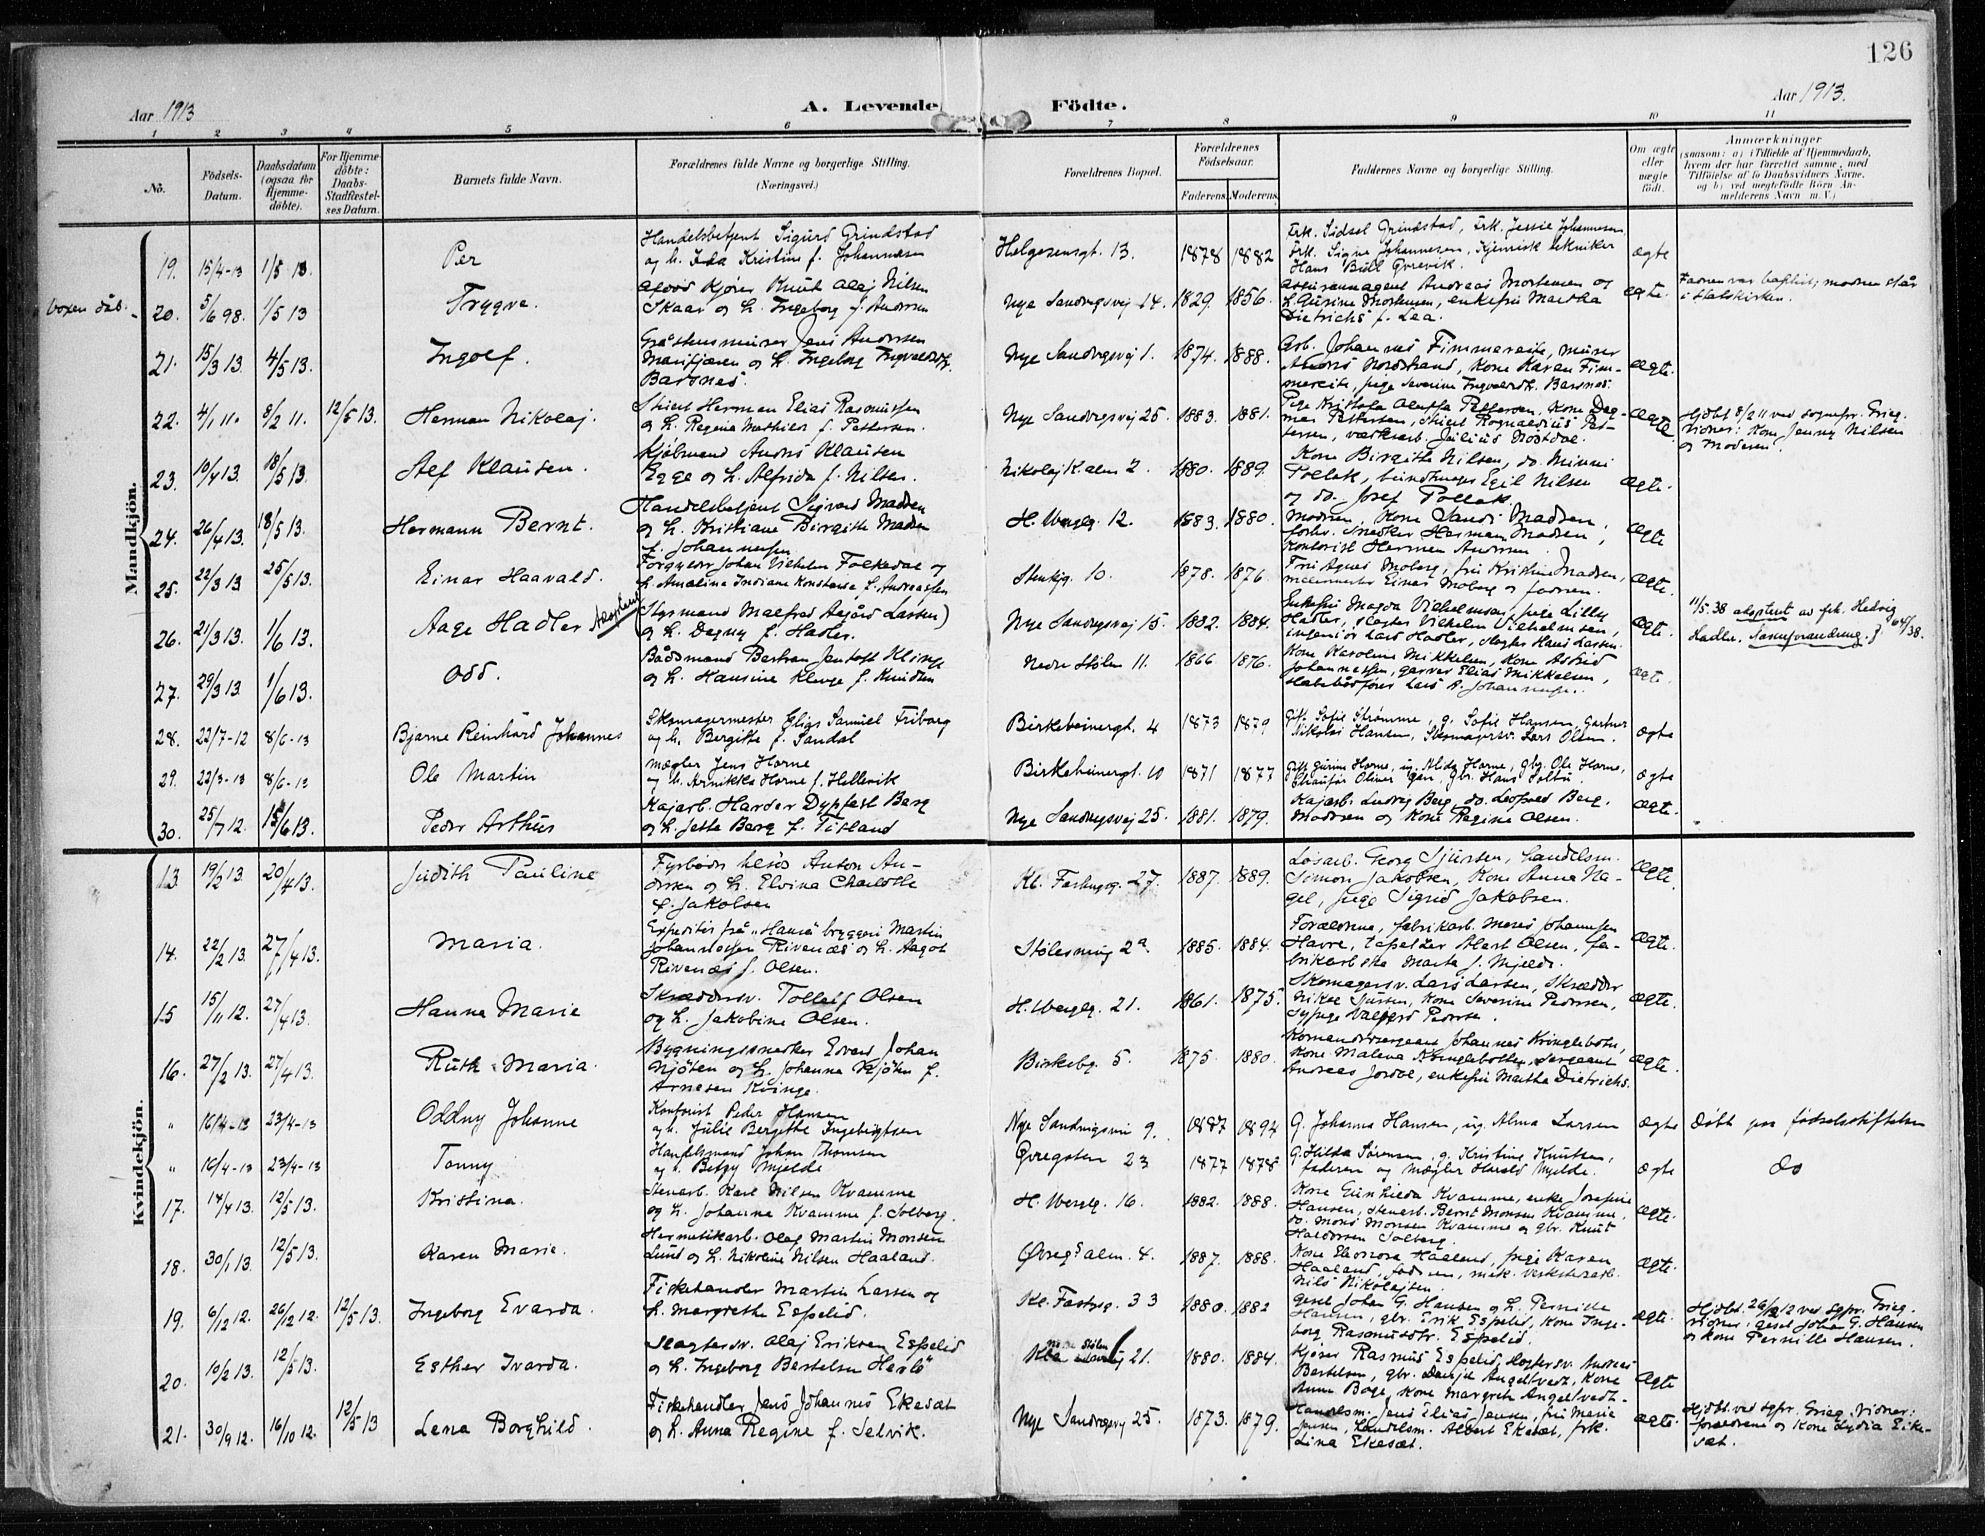 126
Aar 1913
A. Levende Födte.
Aar 1913.
1 2 3 4 5 6 7 8 9 10 11
No.
Födsels-Datum.
Daabsdatum (ogsaa for Hjemme-döbte).
For Hjemme-döbte: Daabs-Stadfæstel-ses Datum.
Barnets fulde Navn.
Forældrenes fulde Navne og borgerlige Stilling. (Næringsvei.)
Forældrenes Bopæl.
Forældrenes Födselsaar.
Faderens. Moderens.
Faddernes Navne og borgerlige Stilling.
Om ægte eller uægte födt.
Anmærkninger
(saasom: a) i Tilfælde af Hjemmedaab, hvem der har forrettet samme, med Tilföielse af to Daabsvidners Navne, og b) ved uægtefödte Börn An-melderens Navn m. V.)
Mandkjön.
19. 15/4-13 1/5 13 Per
Handelsbetjent Sigurd Grindstad
og h. Ida Kristine f. Johannesen
Helgesensgt. 13. 1878 1882
Frk. Sidsel Grindstad, Frk. Jessie Johannesen
Frk. Signe Johannesen, Kjemisk tekniker
Hans Bull Gvrevik.
ægte
voxen dåb.
20. 5/6 98. 1/5 13 Trygve.
Kjører Knut Olaj Nilsen
Skaar og h. Ingeborg f. Andersen
Nye Sandvigsvej 14. 1829. 1856.
Assuranceagent Andreas Mortensen og
h. Gurine Mortensen, enkefru Martha
Dietrichs f. Lea.
ægte.
Faderen var baptist; moderen står
i statskirken.
21. 15/3 13. 4/5 13. Ingolf.
Gråstensmurer Jens Andersen
Marifjæren og h. Ingeborg Ingvaldsdtr.
Barsnes.
Nye Sandvigsvej 1. 1874. 1888.
Arb. Johannes Fimmereite, murer
Anders Nordstrand, Kone Karen Fim-
mereite, pige Severine Ingvaldsdtr. Barsnes.
ægte.
22. 4/1 11. 8/2 11. 12/5 13. Herman Nikolaj.
Skibst Herman Elias Rasmussen
og h. Regina Mathilde f. Pettersen.
Nye Sandvigsvej 25. 1883. 1881.
Pige Kristofa Oluffa Pettersen, Kone Dag-
mar Pettersen, Skibst Rognaldius Pet-
tersen, værkarb. Julius Nostdal.
ægte.
Hjdbt 8/2 11 ved sognepr. Grieg.
Vidner: Kone Jenny Nilsen
og Moderen.
23. 10/4 13. 18/5 13. Alf Klausen.
Kjølmand Anders Klausen
Egge og h. Alfrida f. Nilsen.
Nikolajk.alm 2. 1880. 1889.
Kone Birgithe Nilsen, do. Minni
Pollak, Egil Nilsen
og do. Josef Pollak.
ægte.
24. 26/4 13. 18/5 13. Hermann Bernt.
Handelsbetjent Sigvard Madsen
og h. Kristiane Birgitte Madsen
f. Johannesen
H. Wergelg. 12. 1883. 1880.
Moderen, Kone Sandi Madsen,
forhv. Snedker Herman Madsen,
Kontorist Herman Andersen.
ægte
25. 22/3 13 25/5 13. Einar Haavald.
Forgylder Johan Vilhelm Folkedal og
h. Amaline Indiane Konstanse f. Andreassen
Stenkjg. 10. 1878. 1876.
Frni Agnes Moberg, fru Kristine Madsen,
malermester Einar Moberg og faderen.
ægte.
26. 21/3 13. 1/6 13. Aage Hadler
Styrmand Malfred Asgård Larsen)
og h. Dagny f. Hadler.
Nye Sandvigsvej 15. 1882. 1884.
Enkefru Magda Vilhelmsen, pige Lilly
Hadler, slagter Vilhelm Vilhelmsen,
ingeniør Lars Hadler, slagter Hans Larsen.
ægte.
11/5.38 adoptert av frk. Hedvig
Hadler. Navneforandring. J. 64/38.
27. 29/3 13 1/6 13. Odd.
Bådsmand Bertran Jentoft Klinge
og h. Hansine Klinge f. Knudsen
Nedre Stølen 11. 1866 1876.
Kone Karoline Mikkelsen, Kone Astrid
Johannessen, garver Elias Mikkelsen,
Lars A. Johannesen.
ægte.
28. 22/7-12 8/6-13 Bjarne Reinhard Johannes
Skomagermester Elias Samuel Friborg
og h. Bergitte f. Sandal
Birkebeinergt. 4 1873 1879
Gift Sofie Strømme, g. Sofie Hansen, Gartner
Nikolai Hansen, Skomagersv. Lars Olsen.
ægte
29. 22/3-13 8/6-13 Ole Martin
Mægler Jens Horne
og h. Annikka Horne f. Hellevik
Birkebeinergt. 10 1871 1877
Gift Gurine Horne, ug. Alida Horne, gbr. Ole Horne,
Chaufør Oliver, gbr. Hans Solbu.
ægte
30. 25/7 12. 15/6 13. Peder Arthur
Kajarb. Harder Dypfest Berg
og h. Jette Berg f. Titland
Nye Sandvigsvej 25. 1881. 1879.
Kajarb. Ludvig Berg, do. Leofred Berg.
Moderen og Kone Regine Olsen.
ægte.
Kvindekjön.
13 19/2 13. 20/4 13. Judith Pauline
Fyrbøder Anton An-
dersen og h. Elvina Charlotte
f. Jakobsen
Kl. Fosswg. 27. 1887. 1889.
Løsarb. Georg Sjursen, handelsm.
Simon Jakobsen, Kone Anna Na-
gel, pige Sigrid Jakobsen.
ægte.
14. 22/2 13. 27/4 13. Maria.
Expeditør frå "Hansa" bryggeri Martin
Johannessen Rivenæs og h. Aagot
Rivenæs f. Olsen.
Stølesmug 2a 1885. 1884.
Forældrene, fabrikarb. Mons Johannsen
Havre, tapetzer Alart Olsen, fa-
brikarbske Marta J. Mjelde.
ægte.
15 15/11 12. 27/4 13. Hanna Marie
Skræddersv. Tolleif Olsen
og h. Jakobine Olsen.
H. Wergelg. 21. 1861. 1875.
Skomagersv. Lars Larsen, Skrædder
Mikal Sjursen, Kone Severine Pedersen,
Sypige Valborg Pedersen.
ægte.
16. 27/2 13. 27/4 13. Ruth Maria.
Bygningssnedker Edvard Johan
Kjøten og h. Johanna Kjøten f.
Arnesen Kvinge.
Birkebg. 5. 1875. 1880.
Komandersergeant Johannes Kringlebotn,
Kone Malena Kringlebotten, sergeant
Andreas Jordal, enkefru Martha Dietrichs.
ægte.
" 16/4-13 23/4-13 Oddny Johanne
Kontorist Peder Hansen
og h. Julie Bergitte Ingebigtsen
Nye Sandvigsvei 9. 1887 1894
G. Johanna Hansen, ug. Alma Larsen
ægte
Døbt paa fødselsstiftelsen
" 16/4-13 23/4-13 Tonny
Handelsmand Johan Thomsen
og h. Betzy Mjelde
Øvregaten 23 1877 1878
G. Hilda Sørensen, g. Kristine Knutsen,
faderen og mægler Harald Mjelde.
ægte
do
17. 14/4 13. 12/5 13. Kristina.
Stenarb. Karl Nilsen Kvamme
og h. Johanna Kvamme f. Solberg.
H. Wergelg. 16. 1882. 1888.
Kone Gunhilda Kvamme, enke Josefine
Hansen, stenarb. Bernt Monsen Kvamme,
do. Mons Monsen Kvamme og gbr. Knut
Haldorsen Solberg.
ægte.
18. 30/1 13. 12/5 13. Karen Marie.
Hermetikarb. Olaf Martin Monsen
Lund og h. Nikoline Nilsen Haaland.
Øvreg.s alm. 4. 1887. 1888.
Kone Eleonora Haaland, pige Karen
Haaland, faderen, mek. verkstedarb.
Nils Nikolajsen.
ægte.
19. 6/12 12. 26/12 12. 12/5 13. Ingeborg Evarda.
Fiskehandler Martin Larsen og
h. Margrethe Espelid.
Kl. Fostsg. 33 1880. 1882
gesel Johan G. Hansen og h. Pernille
Hansen, gbr. Erik Espelid, Kone Inge-
borg Rasmusdtr. Espelid.
ægte.
Hjdbt. 26/12 12 ved sgpr. Grieg.
Vidner: gesel Johan G. Hansen
og Kone Pernille Hansen.
20. 10/2 13. 12/5 13. Esther Ivarda.
Slagtersv. Olaj Eriksen Espelid
og h. Ingeborg Bertelsen Herlø
Nedre Stølen 21. 1880. 1884.
Kjører Rasmus Espelid, slagtersv. Andreas
Bertelsen, gbr. Daniel Angeltvedt, Kone
Anna Boge, Kone Margrete Angeltvedt.
ægte
21. 30/9 12. 16/10 12. 12/5 13 Lena Borghild
Fiskehandler Jens Johannes Ekesæt
og h. Anna Regine f. Selvik.
Nye Sandvigsvej 25. 1873. 1879.
Handelsm. Jens Elias Jensen, fru Marie
Jensen, handelsm. Albert Ekesæt, frk.
Lina Ekesæt.
ægte.
Hjdbt. ved sgpr. Grieg. Vidner:
forældrene og Kone Lydia Eike-
sæt.